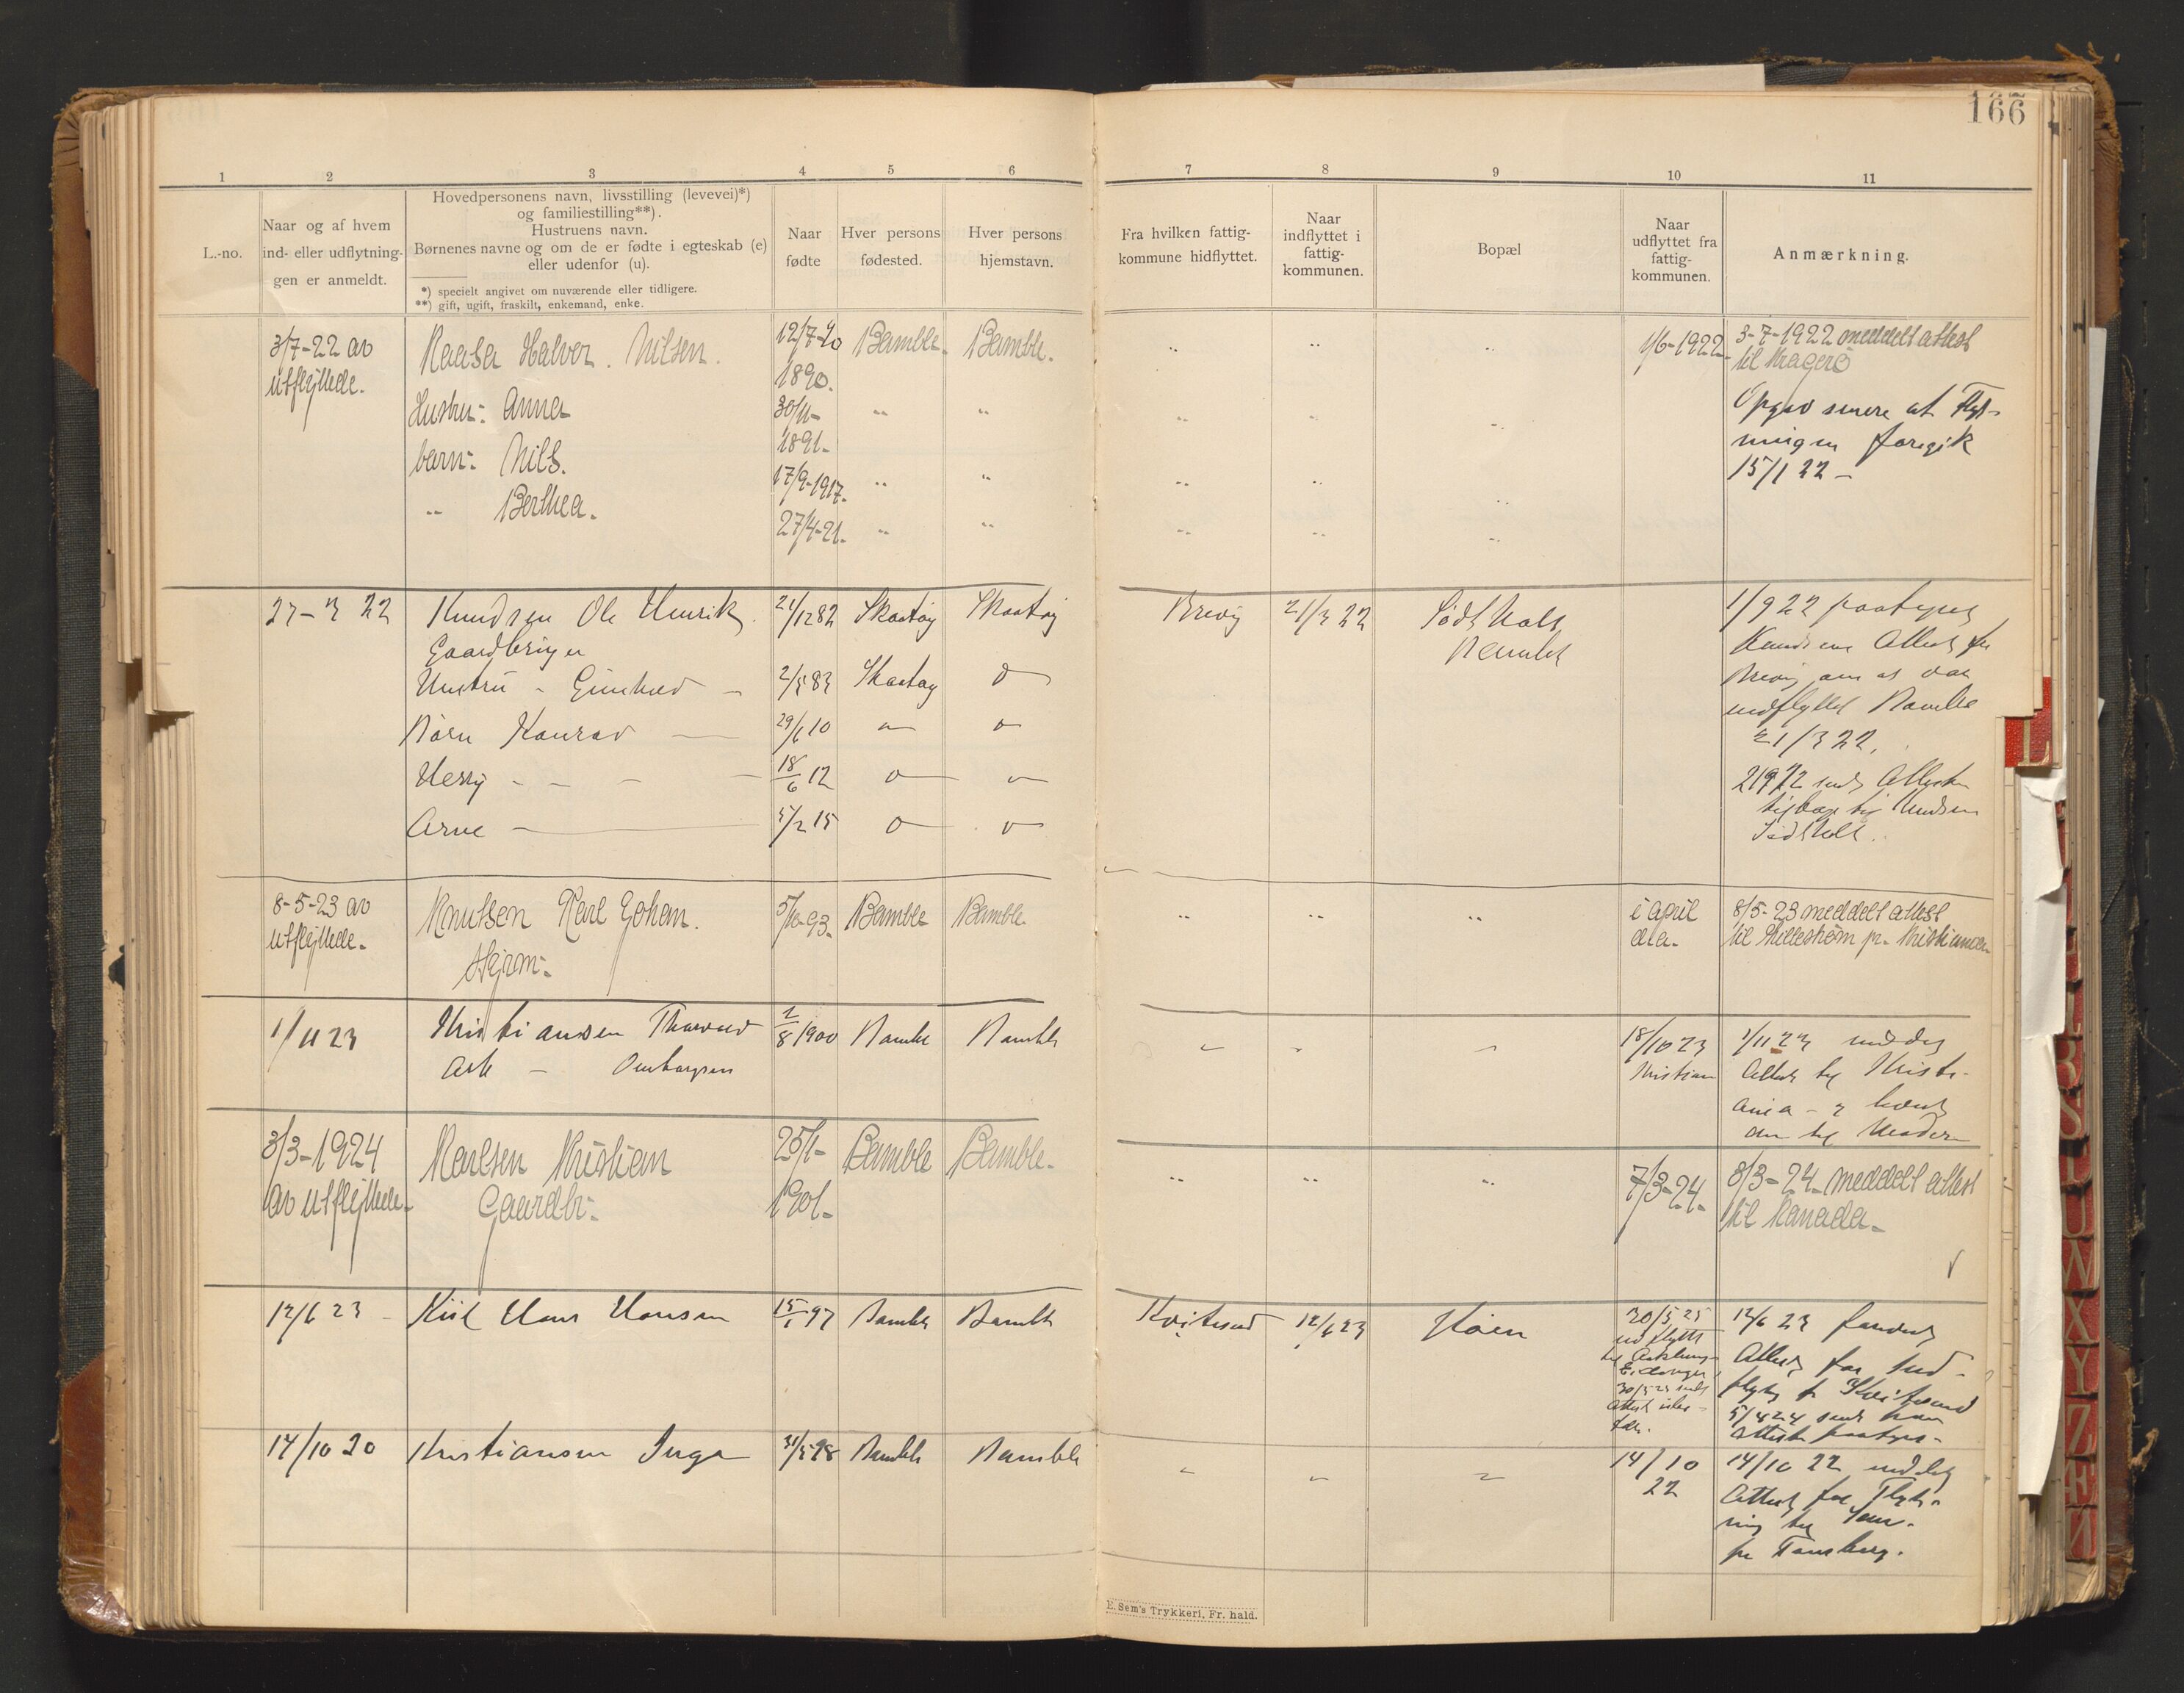 166
1 2 3 4 5 6 7 8 9 10 11
L.-no.
Naar og af hvem
ind- eller udflytning-
gen er anmeldt.
Hovedpersonens navn, livsstilling (levevei)*)
og familiestilling**).
Hustruens navn.
Børnenes navne og om de er fødte i egteskab (e)
eller udenfor (u).
*) specielt angivet om nuværende eller tidligere.
**) gift, ugift, fraskilt, enkemand, enke.
Naar
fødte
Hver persons
fødested.
Hver persons
hjemstavn.
Fra hvilken fattig-
kommune hidflyttet.
Naar
indflyttet i
fattig-
kommunen.
Bopæl
Naar
udflyttet fra
fattig-
kommunen.
Anmærkning.
3/7-22 av
utflyttede.
Kaasa Halvor Nilsen.
12/7-90
1890.
Bamble. Bamble.
1/6-1922
3-7-1922 meddelt attest
til Kragerö
Hustru: Anna
30/11-
1891.
Opgav senere at Flyt-
ningen foregik
15/1 22 -
barn: Nils.
17/9-1917.
" Berthea.
27/4-21.
27-3 22
Knudsen Ole Henrik
Gaardbruger
21/12 82 Skaatøy Skaatøy
Brevig 21/3 22
Bamble
1/9 22 paategnet
Knudsens Attest fra
Brevig om at være
indflyttet Bamble
21/3 22.
Hustru - Gunhild -
2/5 83 Skaatøy
Børn Konrad
29/6 10
Henry - - -
18/6 12
Arne
5/2 15
Attesten
tilbage til Knudsen
8-5-23 av
utflyttede.
Knutsen Karl Johan.
Styrm.
93. Bamble Bamble
i april
d.a.
8/5-23 meddelt attest
til Lilleström pr. Kristiania
1/11 23
Kristiansen Thorvald
Ark -
1/8 1900 Bamble Bamble
18/10 23
Kristian
1/11 23 meddelt
Attest til Kristi-
ania -
til Moderen
3/3-1924
av utflyttede.
Karlsen Kristian
Gaardbr.
25/1-
1901.
Bamble Bamble.
7/3-24.
8/3-24. meddelt attest
til Kanada.
12/6 23 -
Kiil Hans Hansen
15/1 97 Bamble Bamble
Kvitesed 12/6 23
30/5 25
udflyttet
til
Eidanger
30/5 25 sendt
Attest
12/6 23
Attest for Ind-
flytn fr Kvitesed
5/4 24 sendt ham
Attest paategn.
14/10 20
Kristiansen Inga
31/5 98 Bamble Bamble
14/10
22
14/10 22 meddelt
Attest for Flyt-
ning til Sem.
pr Tønsberg.
E. Sem's Trykkeri, Fr. hald.
L
R
S
T
U
W
X
Y
Z
Æ
Ø